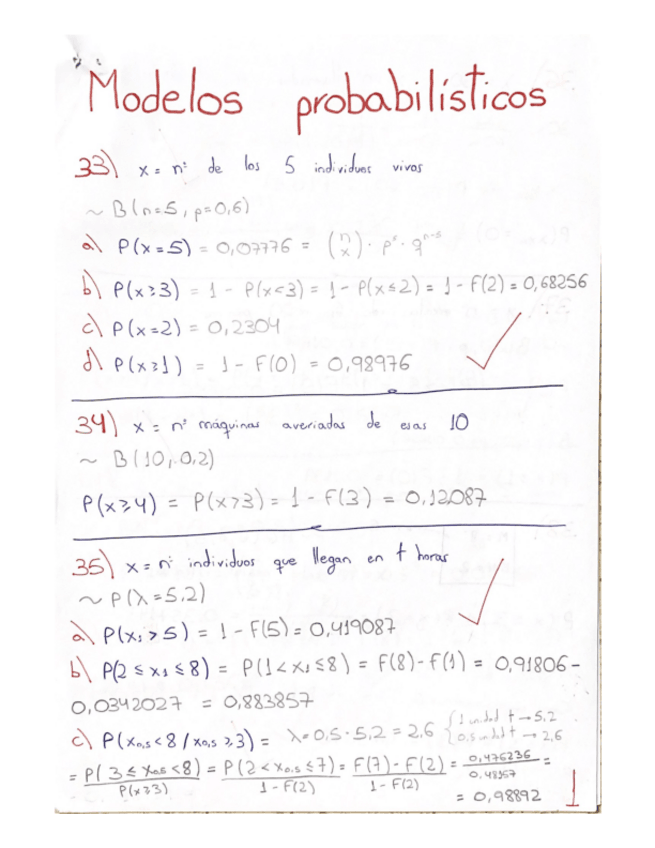 Modelos probabilísticos
33) x = nº de los 5 individuos vivos
~ B(n=5, p=0,6)
a) P(x=5) = 0,07776 = (n x) · p⁵ · qⁿ⁻⁵
b) P(x≥3) = 1 - P(x<3) = 1 - P(x≤2) = 1 - F(2) = 0,68256
c) P(x=2) = 0,2304
d) P(x≥1) = 1 - F(0) = 0,98976
34) x = nº máquinas averiadas de esas 10
~ B(10, 0,2)
P(x≥4) = P(x>3) = 1 - F(3) = 0,12087
35) x = nº individuos que llegan en t horas
~ P(λ=5,2)
a) P(x₁>5) = 1 - F(5) = 0,419087
b) P(2≤x₁≤8) = P(1<x₁≤8) = F(8) - F(1) = 0,91806 -
0,0342027 = 0,883857
c) P(x₀,₅<8 / x₀,₅≥3) = λ=0,5·5,2 = 2,6 { 1 unidad t → 5,2
0,5 unidad t → 2,6
= P(3≤x₀,₅<8) / P(x≥3) = P(2<x₀,₅≤7) / 1-F(2) = F(7)-F(2) / 1-F(2) = 0,476236 / 0,48157 =
= 0,98892
1